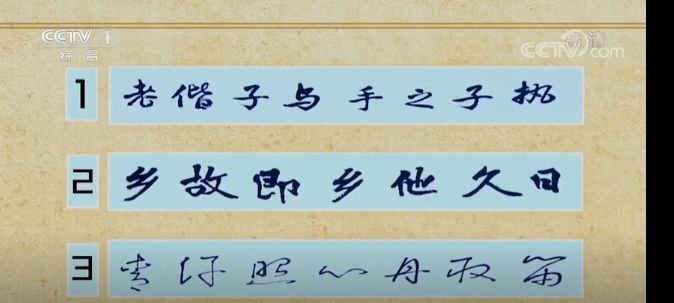 CCTV 1
综合
高清
CCTV.com
1 老偕子与手之子执
2 乡故即乡他久日
3 青汗照心丹取留